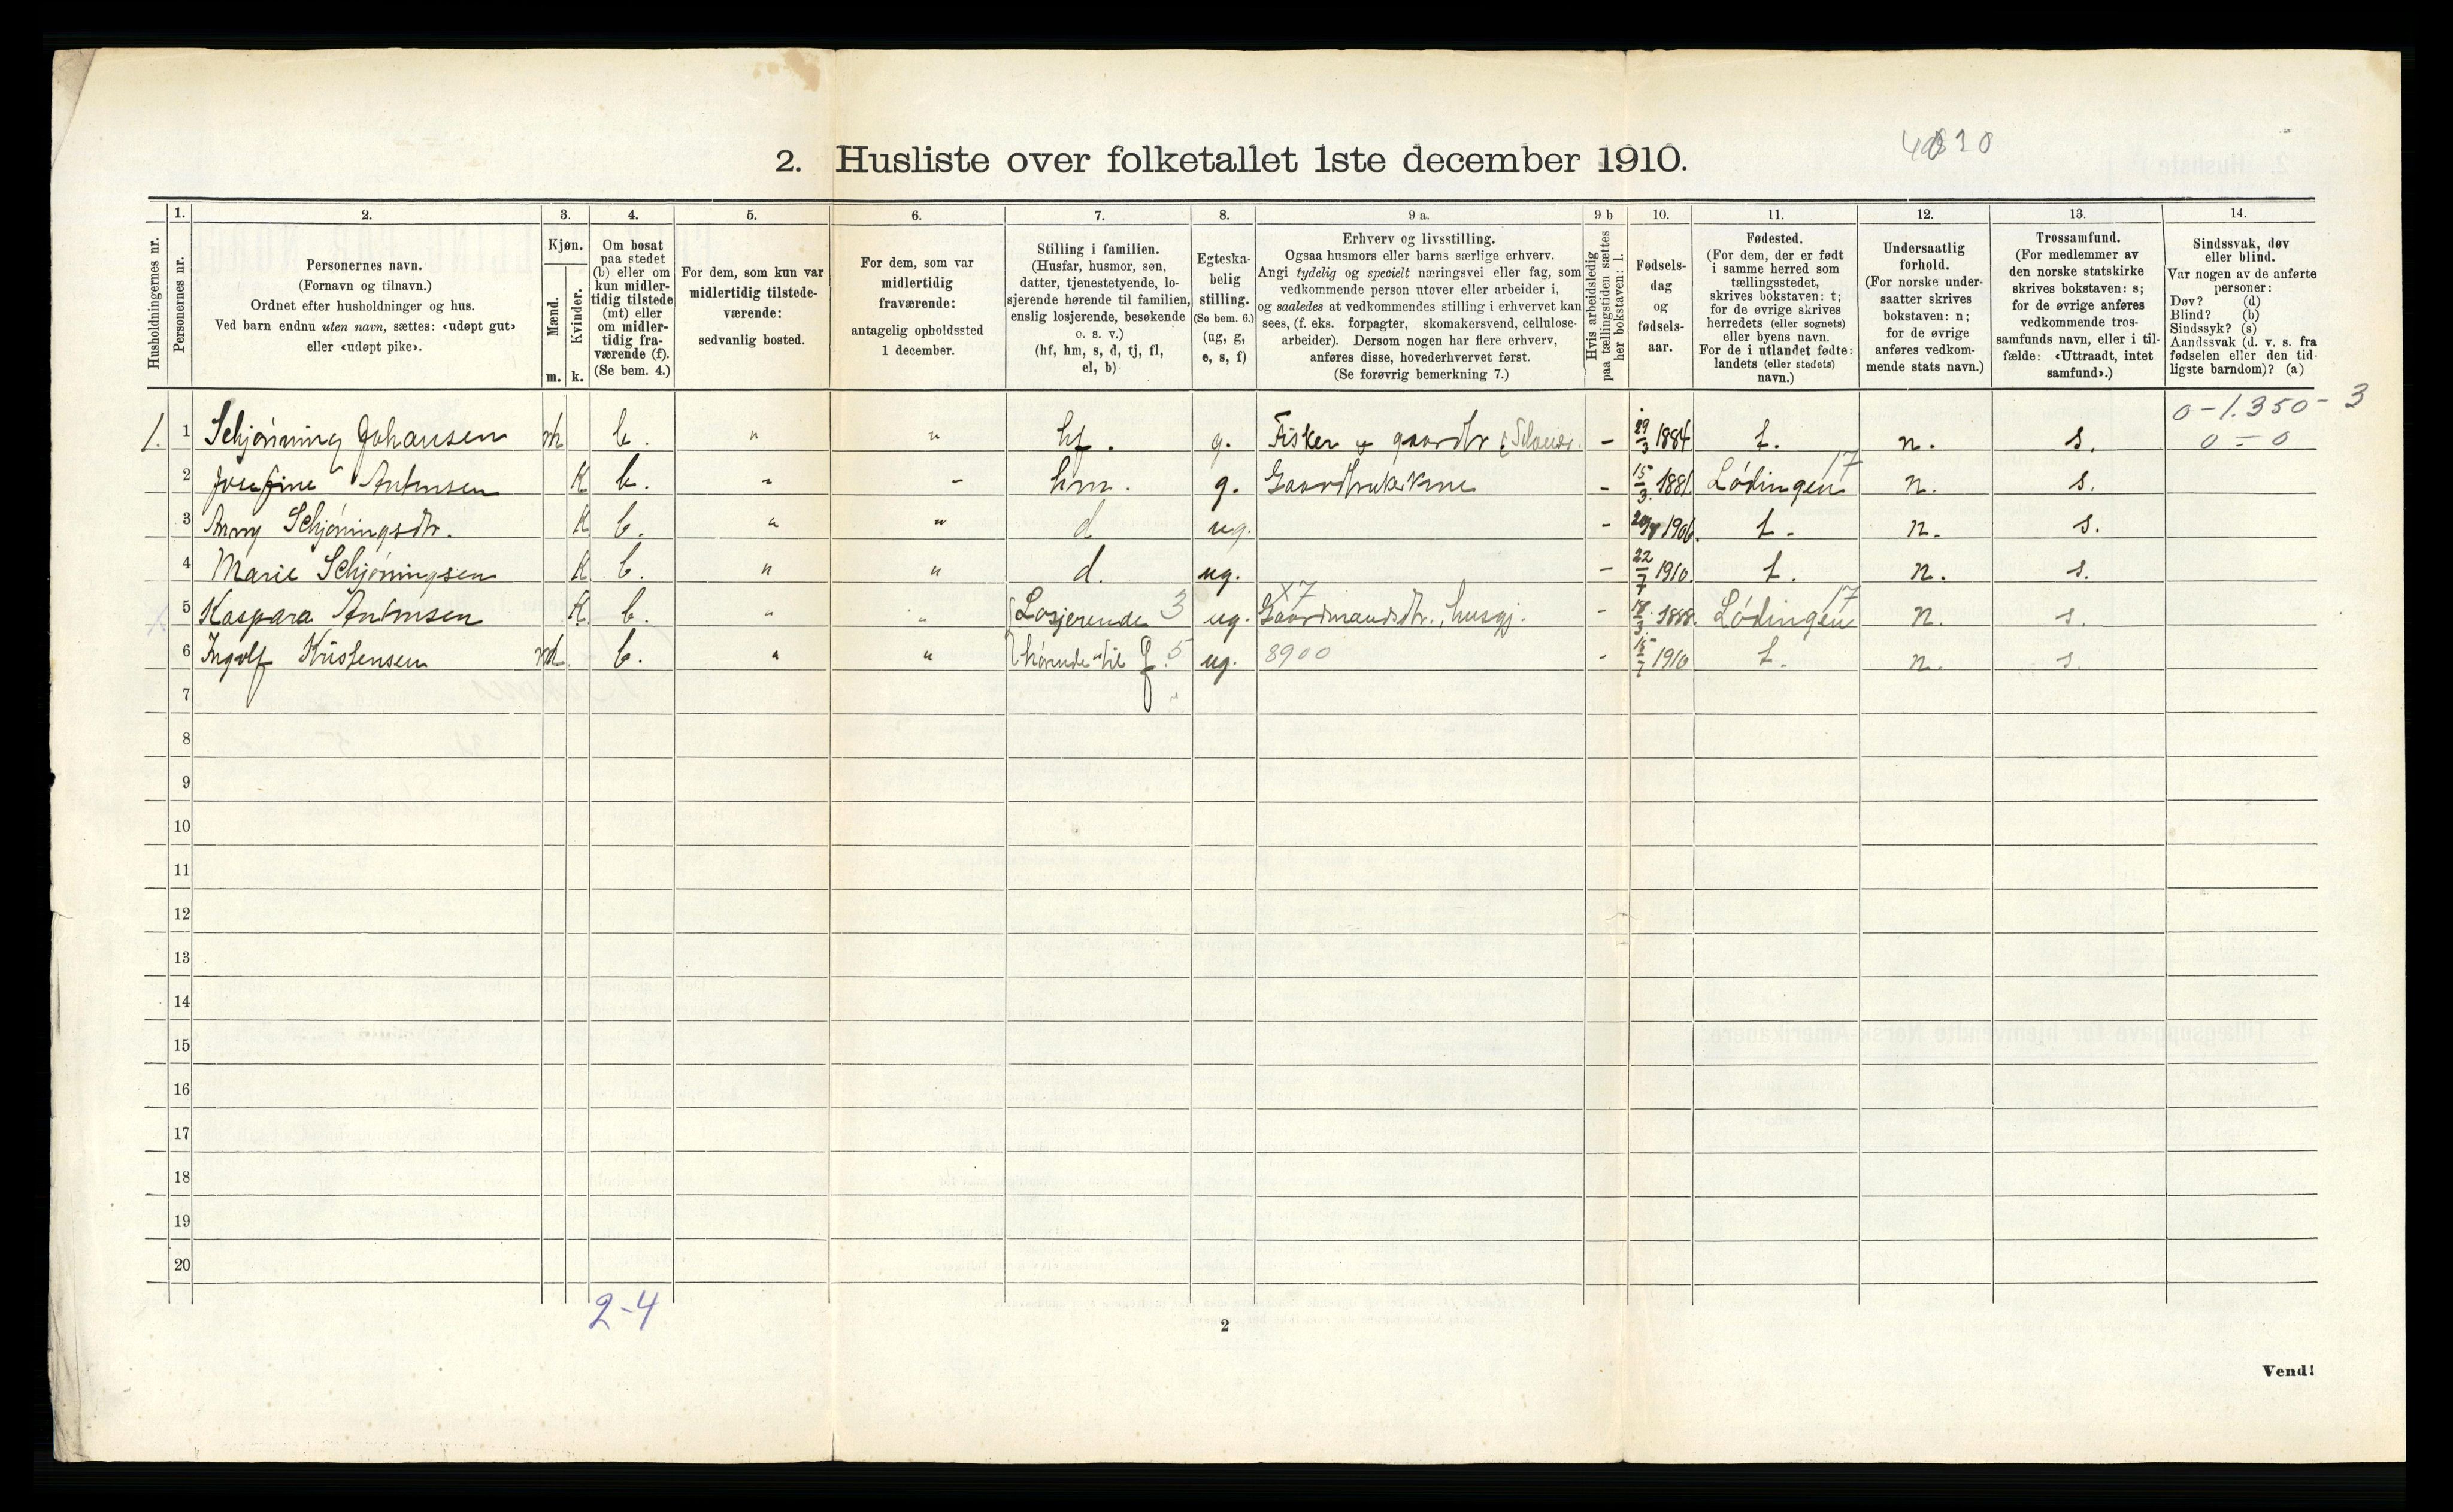 4010
2. Husliste over folketallet 1ste december 1910.
Husholdningernes nr.
1. Personernes nr.
2. Personernes navn.
(Fornavn og tilnavn.)
Ordnet efter husholdninger og hus.
Ved barn endnu uten navn, sættes: «udøpt gut»
eller «udøpt pike».
3. Kjøn.
Mænd. Kvinder.
m. k.
4. Om bosat
paa stedet
(b) eller om
kun midler-
tidig tilstede
(mt) eller
om midler-
tidig fra-
værende (f).
(Se bem. 4.)
5. For dem, som kun var
midlertidig tilstede-
værende:
sedvanlig bosted.
6. For dem, som var
midlertidig
fraværende:
antagelig opholdssted
1 december.
7. Stilling i familien.
(Husfar, husmor, søn,
datter, tjenestetyende, lo-
sjerende hørende til familien,
enslig losjerende, besøkende
o. s. v.)
(hf, hm, s, d, tj, fl,
el, b)
8. Egteska-
belig
stilling.
(Se bem. 6.)
(ug, g,
e, s, f)
9 a. Erhverv og livsstilling.
Ogsaa husmors eller barns særlige erhverv.
Angi tydelig og specielt næringsvei eller fag, som
vedkommende person utøver eller arbeider i,
og saaledes at vedkommendes stilling i erhvervet kan
sees, (f. eks. forpagter, skomakersvend, cellulose-
arbeider). Dersom nogen har flere erhverv,
anføres disse, hovederhvervet først.
(Se forøvrig bemerkning 7.)
9 b Hvis arbeidsledig
paa tællingstiden sættes
her bokstaven: l.
10. Fødsels-
dag
og
fødsels-
aar.
11. Fødested.
(For dem, der er født
i samme herred som
tællingsstedet,
skrives bokstaven: t;
for de øvrige skrives
herredets (eller sognets)
eller byens navn.
For de i utlandet fødte:
landets (eller stedets)
navn.)
12. Undersaatlig
forhold.
(For norske under-
saatter skrives
bokstaven: n;
for de øvrige
anføres vedkom-
mende stats navn.)
13. Trossamfund.
(For medlemmer av
den norske statskirke
skrives bokstaven: s;
for de øvrige anføres
vedkommende tros-
samfunds navn, eller i til-
fælde: «Uttraadt, intet
samfund».)
14. Sindssvak, døv
eller blind.
Var nogen av de anførte
personer:
Døv? (d)
Blind? (b)
Sindssyk? (s)
Aandssvak (d. v. s. fra
fødselen eller den tid-
ligste barndom)? (a)
0 - 1.350 - 3
0 = 0
1. 1 Schjønning Johansen m b. " " hf. g. Fisker & gaardbr - 29/3 1884 t. n. s.
2 Josefine Antonsen K b. " - hm. g. Gaardbrukerkone - 15/3 1881. Lødingen 17 n. s.
3 Anny Schjøningsdtr. K b. " " d ug. - 1906. t. n. s.
4 Marie Schjøningsen K b. " " d. ug. - 22/7 1910. t. n. s.
5 Kaspara Antonsen K b. " " Losjerende 3 ug. X7 Gaardmandsdtr., husgj. - 18/3 1888. Lødingen 17 n. s.
6 Ingolf Kristensen m b. " " hørende til f. 5 ug. 8900 - 15/7 1910 t. n. s.
7
8
9
10
11
12
13
14
15
16
17
18
19
20
2-4
2
Vend!